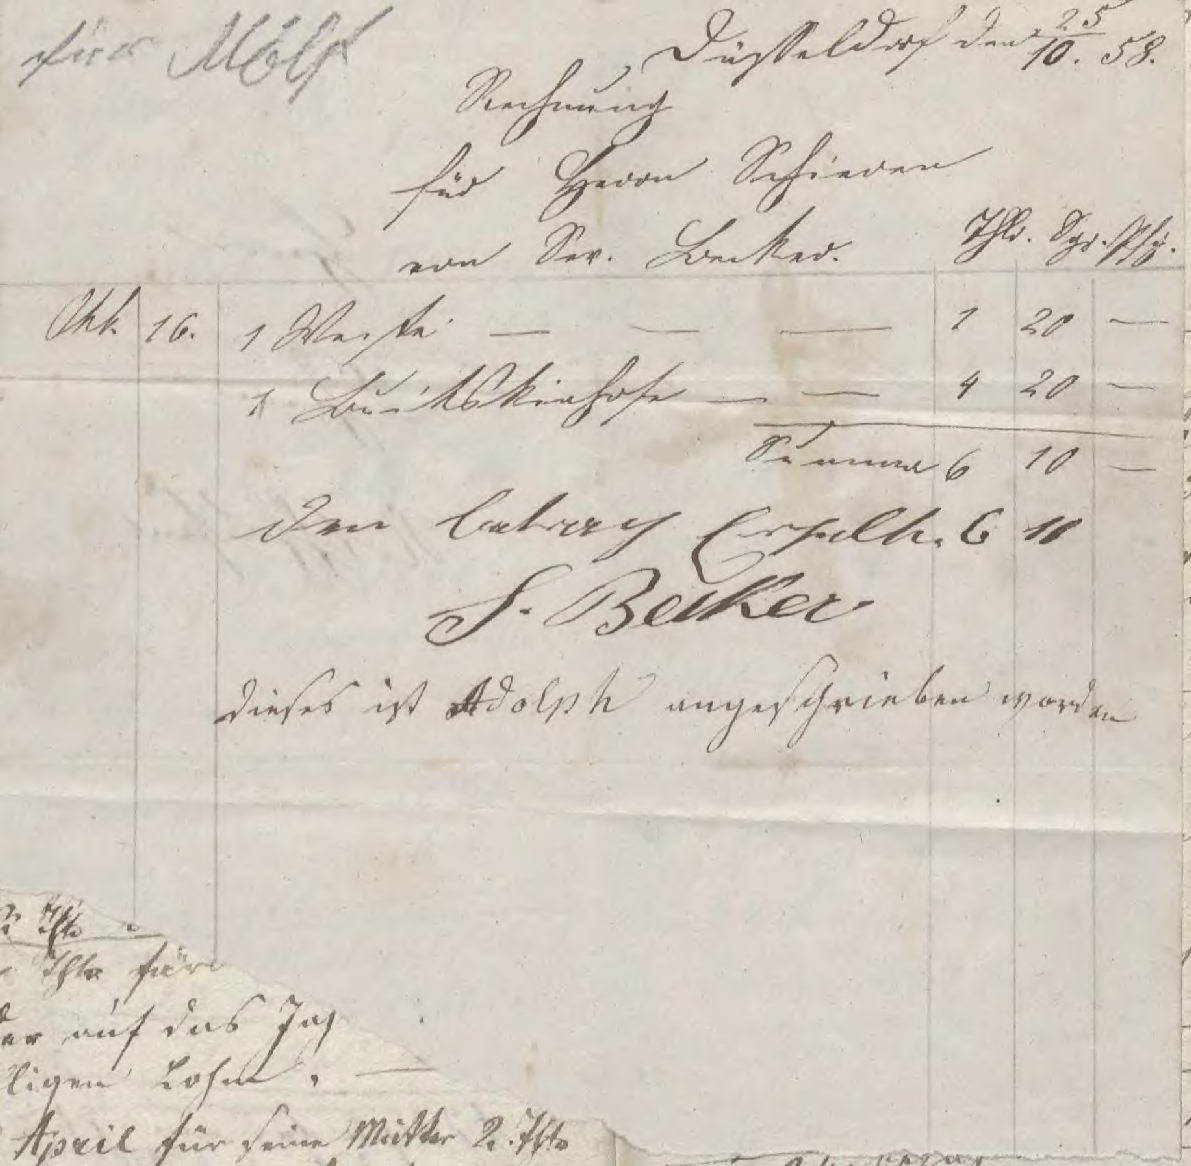 für Mölf
Düsseldorf den 25/10. 58.
Rechnung
für Herrn Schieren
von Sev. Becker.
Thlr. Sgr. Pfg.
Okt. 16. 1 Weste — — — 1 20 —
1 Buckskinhose — — 4 20 —
Summa 6 10 —
den betrag Erhalt. 6 10
S. Becker
dieses ist Adolph angeschrieben worden
2 Thlr
Thlr für
der auf das Jah
lligen Lohn.
April für seine Mutter 2. Thlr